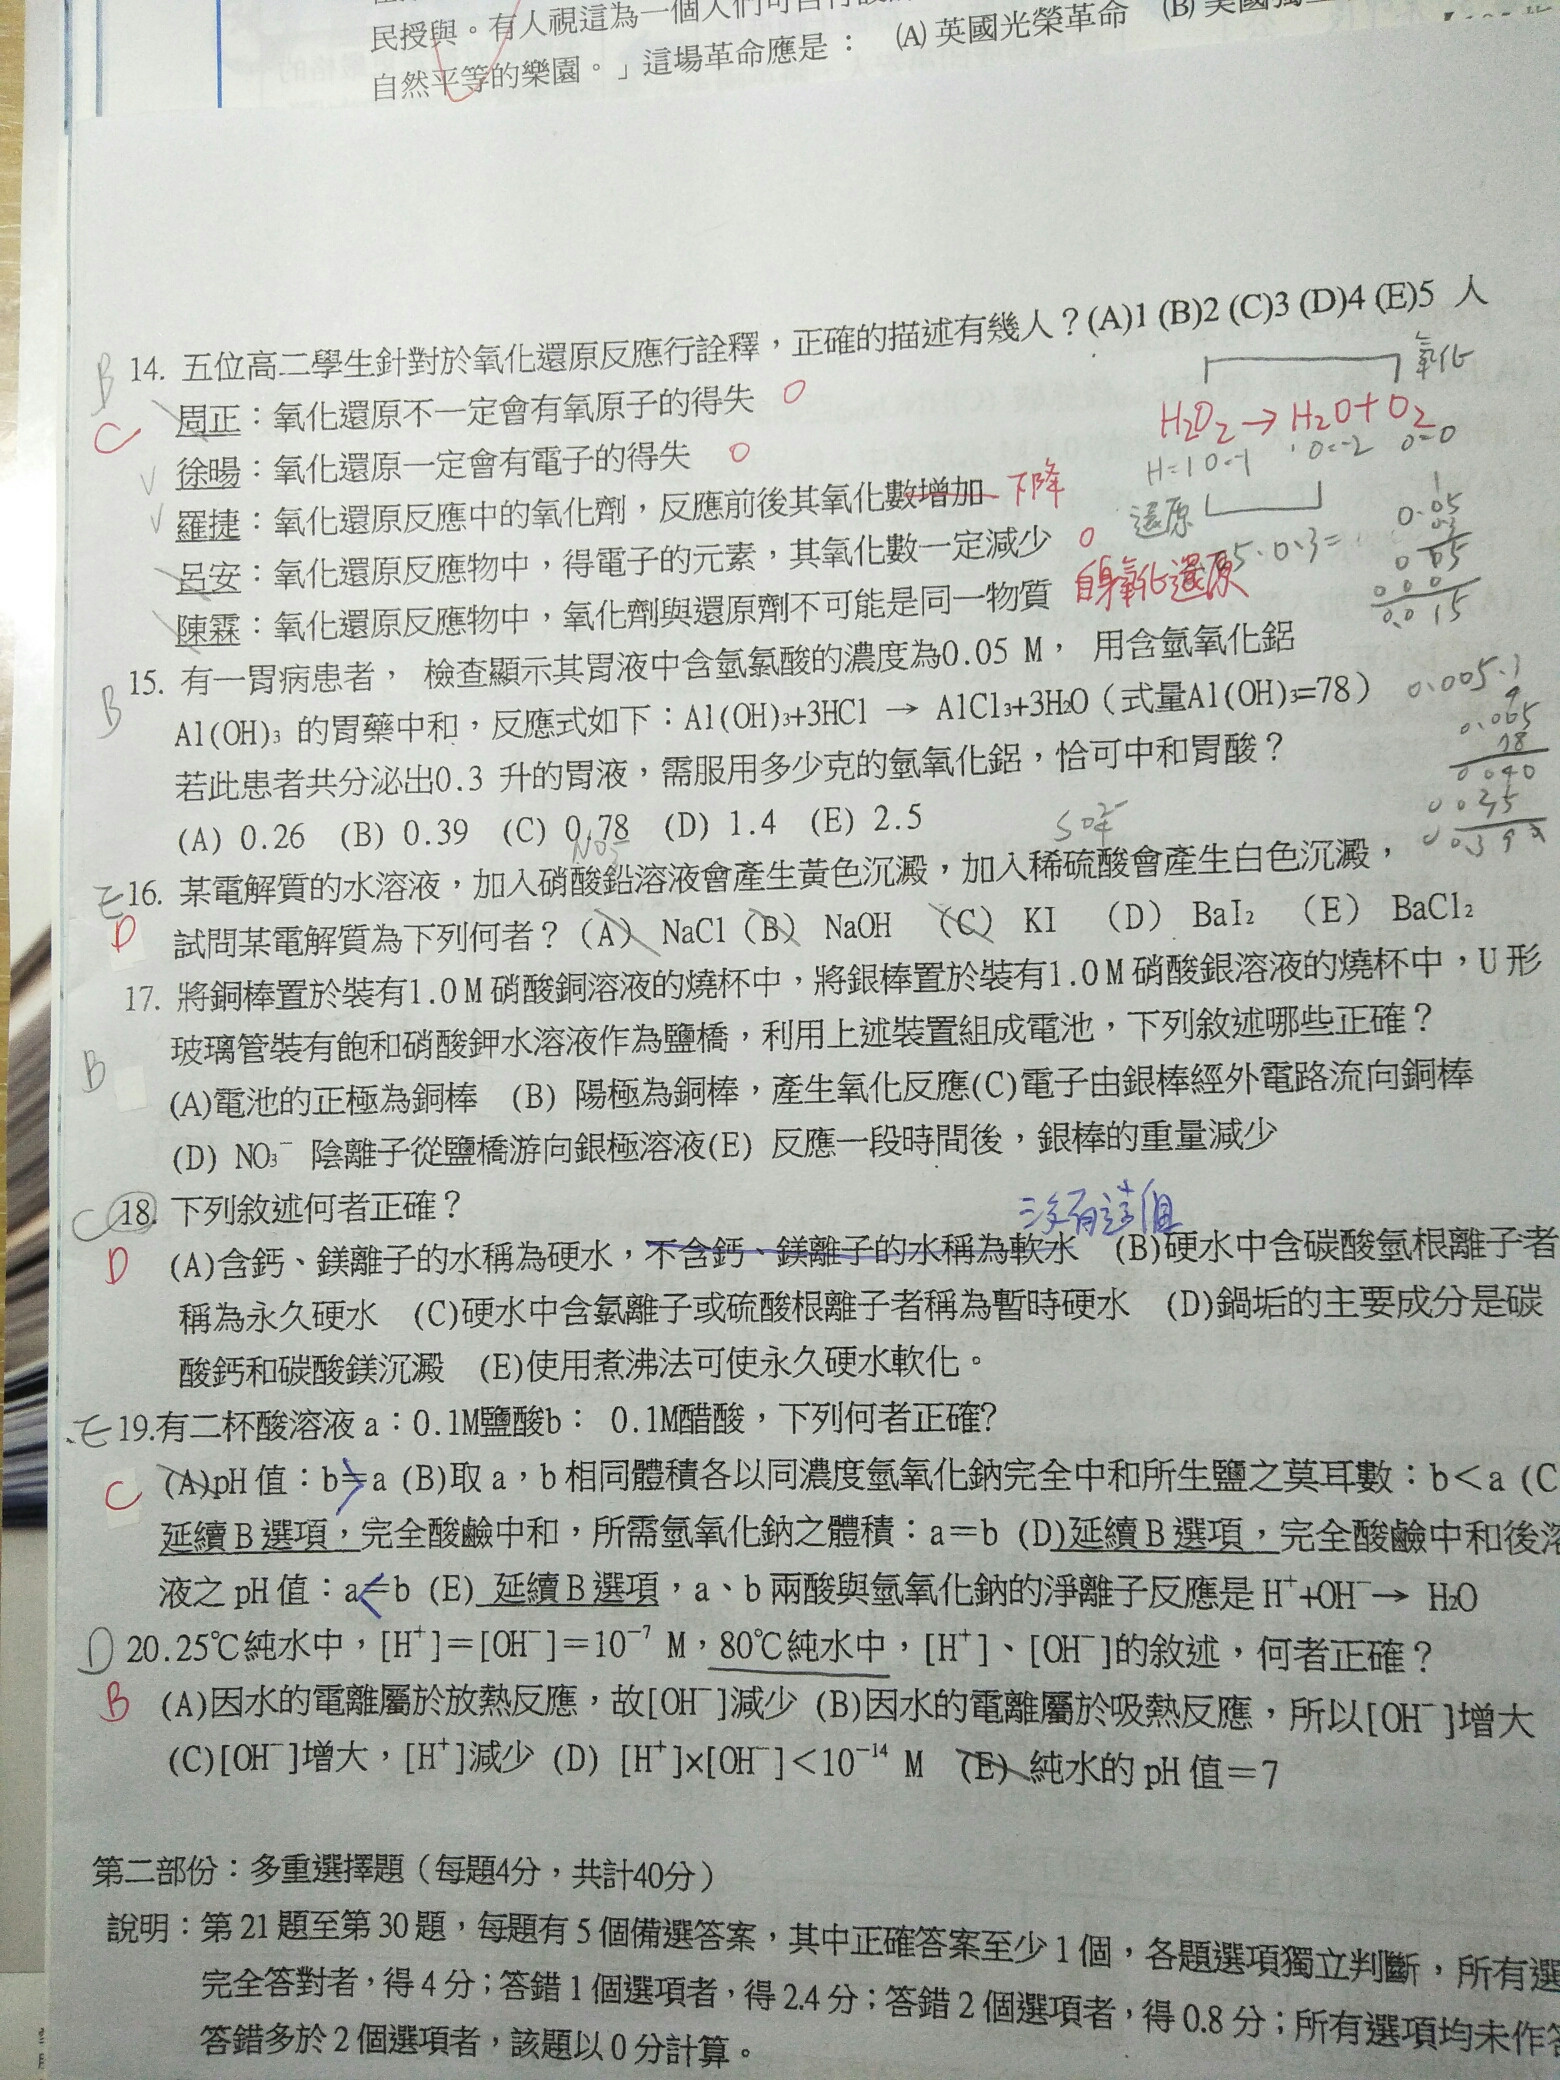 民授與。有人視這為一個人們可自行設
自然平等的樂園。」這場革命應是： (A) 英國光榮革命 (B) 美國獨立
B 14. 五位高二學生針對於氧化還原反應行詮釋，正確的描述有幾人？(A)1 (B)2 (C)3 (D)4 (E)5 人
氧化
C 周正：氧化還原不一定會有氧原子的得失 O
H₂O₂ → H₂O + O₂
徐暘：氧化還原一定會有電子的得失 O
H=1 O=-1 O=-2 O=0
羅捷：氧化還原反應中的氧化劑，反應前後其氧化數增加 下降
還原
呂安：氧化還原反應物中，得電子的元素，其氧化數一定減少 O
5.0.3=
0.05
0.3
0 0 5
0 0 0
0.0 15
陳霖：氧化還原反應物中，氧化劑與還原劑不可能是同一物質 自身氧化還原
B 15. 有一胃病患者， 檢查顯示其胃液中含氫氯酸的濃度為0.05 M， 用含氫氧化鋁
Al(OH)₃ 的胃藥中和，反應式如下：Al(OH)₃+3HCl → AlCl₃+3H₂O（式量Al(OH)₃=78）
0.005
若此患者共分泌出0.3 升的胃液，需服用多少克的氫氧化鋁，恰可中和胃酸？
78
0 0 40
(A) 0.26 (B) 0.39 (C) 0.78 (D) 1.4 (E) 2.5
NO₃⁻
SO₄²⁻
E 16. 某電解質的水溶液，加入硝酸鉛溶液會產生黃色沉澱，加入稀硫酸會產生白色沉澱，
D 試問某電解質為下列何者？(A) NaCl (B) NaOH (C) KI (D) BaI₂ (E) BaCl₂
17. 將銅棒置於裝有1.0M硝酸銅溶液的燒杯中，將銀棒置於裝有1.0M硝酸銀溶液的燒杯中，U形
玻璃管裝有飽和硝酸鉀水溶液作為鹽橋，利用上述裝置組成電池，下列敘述哪些正確？
B (A)電池的正極為銅棒 (B) 陽極為銅棒，產生氧化反應(C)電子由銀棒經外電路流向銅棒
(D) NO₃⁻ 陰離子從鹽橋游向銀極溶液(E) 反應一段時間後，銀棒的重量減少
C 18. 下列敘述何者正確？
沒有這個
D (A)含鈣、鎂離子的水稱為硬水，不含鈣、鎂離子的水稱為軟水 (B)硬水中含碳酸氫根離子者
稱為永久硬水 (C)硬水中含氯離子或硫酸根離子者稱為暫時硬水 (D)鍋垢的主要成分是碳
酸鈣和碳酸鎂沉澱 (E)使用煮沸法可使永久硬水軟化。
E 19.有二杯酸溶液 a：0.1M鹽酸b： 0.1M醋酸，下列何者正確?
C (A)pH值：b=a (B)取a，b相同體積各以同濃度氫氧化鈉完全中和所生鹽之莫耳數：b＜a (C
延續B選項，完全酸鹼中和，所需氫氧化鈉之體積：a＝b (D)延續B選項，完全酸鹼中和後溶
液之pH值：a=b (E) 延續B選項，a、b兩酸與氫氧化鈉的淨離子反應是H⁺+OH⁻→ H₂O
D 20.25℃純水中，[H⁺]＝[OH⁻]＝10⁻⁷ M，80℃純水中，[H⁺]、[OH⁻]的敘述，何者正確？
B (A)因水的電離屬於放熱反應，故[OH⁻]減少 (B)因水的電離屬於吸熱反應，所以[OH⁻]增大
(C)[OH⁻]增大，[H⁺]減少 (D) [H⁺]×[OH⁻]＜10⁻¹⁴ M (E) 純水的pH值＝7
第二部份：多重選擇題（每題4分，共計40分）
說明：第21題至第30題，每題有5個備選答案，其中正確答案至少1個，各題選項獨立判斷，所有選
完全答對者，得4分；答錯1個選項者，得2.4分；答錯2個選項者，得0.8分；所有選項均未作答
答錯多於2個選項者，該題以0分計算。